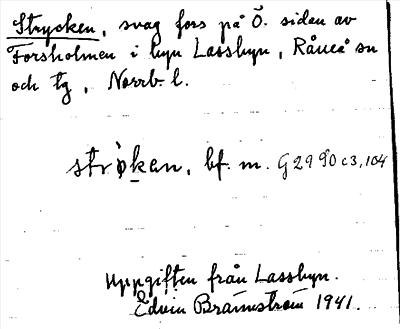 Strycken, svag fors på Ö. sidan av
Forsholmen i byn Lassbyn, Råneå sn
och tg, Norrb. l.
strỵ̀ken, bf. m. G2990c3,104
Uppgiften från Lassbyn.
Edvin Brännström 1941.